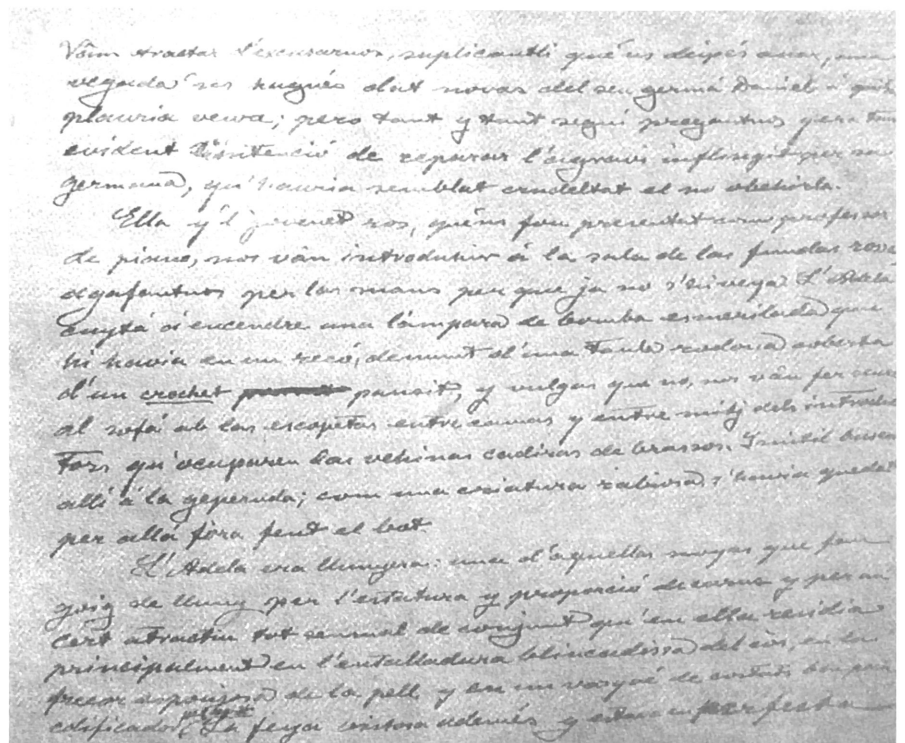 Vàm tractar d'excusarnos, suplicantli qué'ns deixés anar, una
vegada ns hagués dat novas del seu germá Daniel á qui'ns
plauria veure; pero tant y tant seguí pregantnos y era tan
evident intenció de reparar l'agravi inflingit per sa
germana, qu'hauria semblat crudeltat el no obehirla.
Ella y'l jovenet ros, qué'ns fou presentat com professor
de piano, nos ván introduhir á la sala de las fundas
agafantnos per las mans per que ja no s'hi veya. L'Adela
cuytá á encendre una lámpara de bomba esmerilada que
hi havia en un recó, demunt d'una taula rodona coberta
d'un crochet pansit, y vulgas que no, nos ván fer seure
al sofá ab las escopetas entre camas y entre mitj dels introduc
tors qu'ocuparen las vehinas cadiras de brassos. Inútil buscar
allí á la geperuda; com una criatura rabiosa s'havia quedat
per allá fòra fent el bot.
L'Adela era llunyera: una d'aquellas noyas que fan
goig de lluny per l'estatura y proporció de carns y per un
cert atractiu tot sensual de conjunt qu'en ella residia
principalment en l'entalladura blincadissa del cós, en la
frescor esponjosa de la pell y en un de
edificador. La feya vistosa ademés y